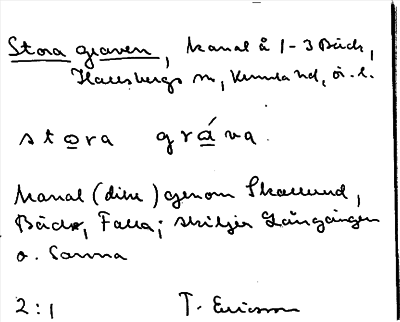 Stora graven, kanal å 1-3 Bäck,
Hallsbergs sn, Kumla hd, ör. l.
stora gráva.
kanal (dike) genom Skallund,
Bäck, Falla; skiljer Långängen
o. Sanna
2:1 T. Ericsson